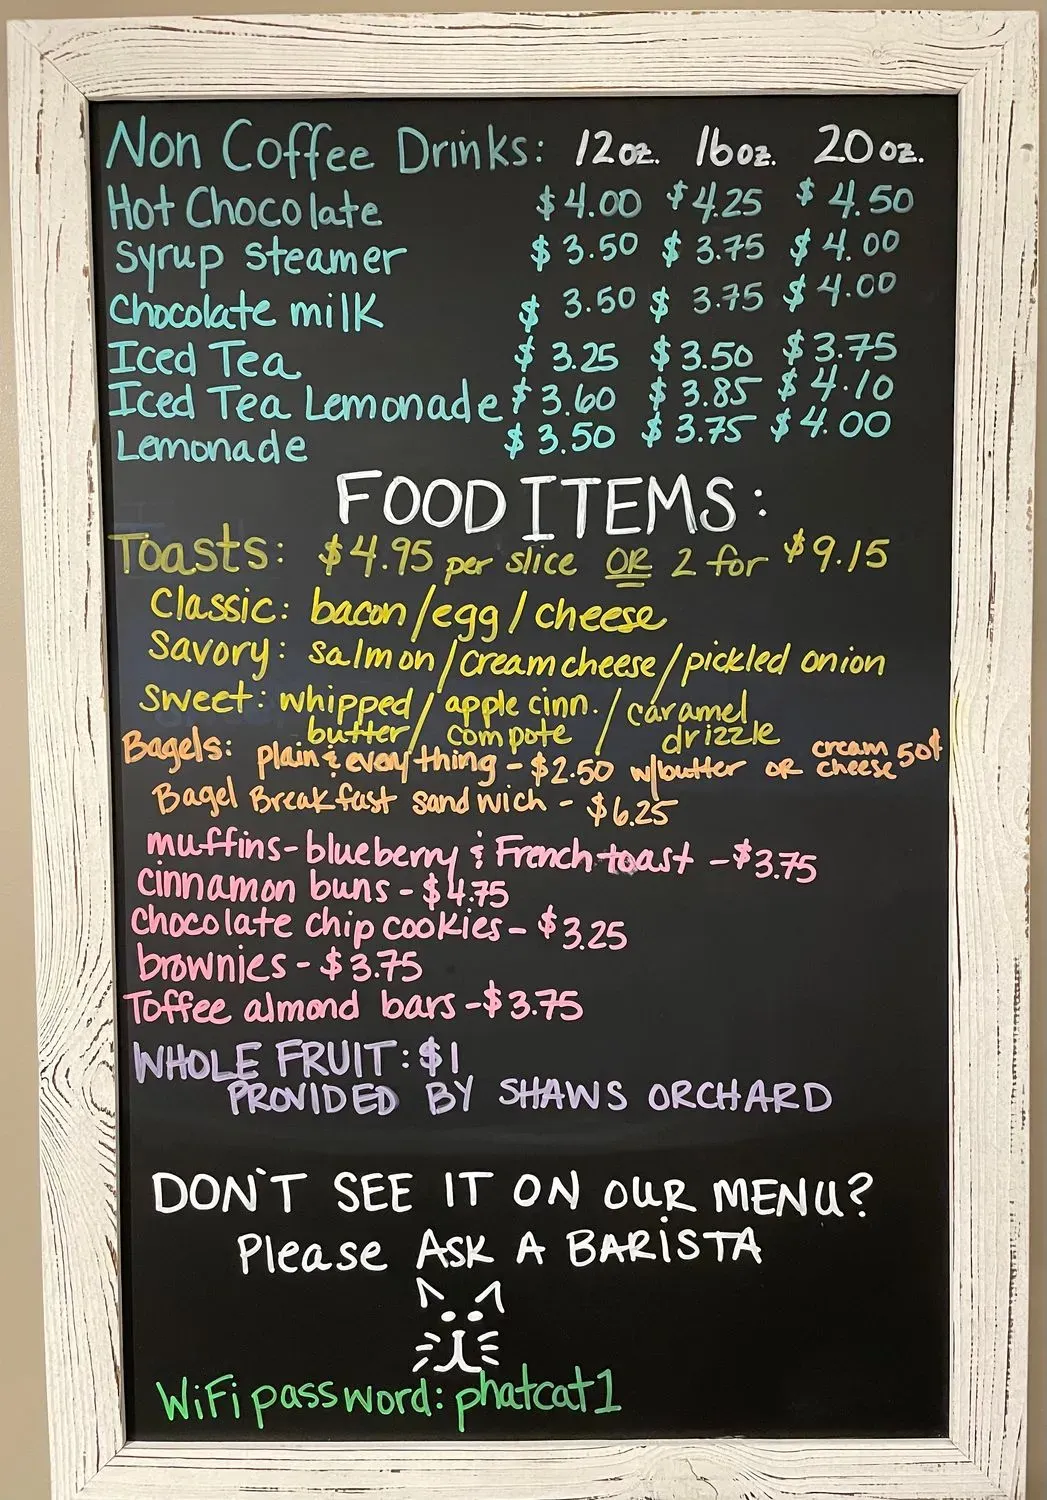 Non Coffee Drinks: 12oz. 16oz. 20oz.
Hot Chocolate $4.00 $4.25 $4.50
Syrup Steamer $3.50 $3.75 $4.00
Chocolate milk $3.50 $3.75 $4.00
Iced Tea $3.25 $3.50 $3.75
Iced Tea Lemonade $3.60 $3.85 $4.10
Lemonade $3.50 $3.75 $4.00
FOOD ITEMS:
Toasts: $4.95 per slice OR 2 for $9.15
Classic: bacon/egg/cheese
Savory: salmon/cream cheese/pickled onion
Sweet: whipped/apple cinn./caramel
butter/compote/drizzle
Bagels: plain & everything - $2.50 w/butter OR cream cheese 50¢
Bagel Breakfast sandwich - $6.25
muffins - blueberry & French toast - $3.75
cinnamon buns - $4.75
chocolate chip cookies - $3.25
brownies - $3.75
Toffee almond bars - $3.75
WHOLE FRUIT: $1
PROVIDED BY SHAWS ORCHARD
DON'T SEE IT ON OUR MENU?
Please ASK A BARISTA
WiFi password: phatcat1